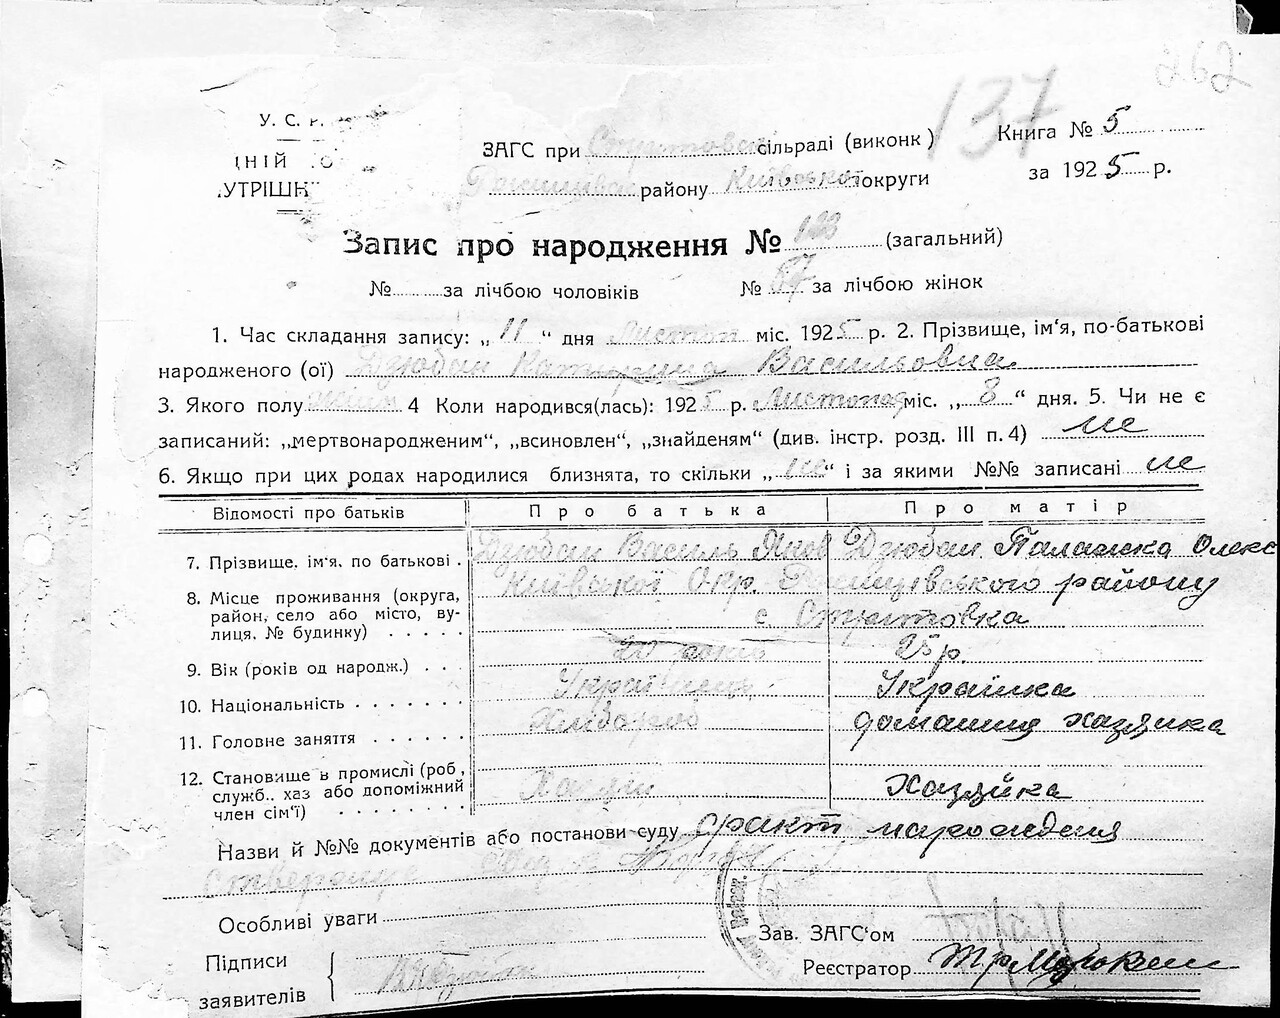 262
137
У. С. Р.
ЦНІЙ
УТРІШН
ЗАГС при сільраді (виконк)
Книга № 5
району Київської округи
за 1925 р.
Запис про народження № 133 (загальний)
№ за лічбою чоловіків № 67 за лічбою жінок
1. Час складання запису: „11“ дня Листоп міс. 1925 р. 2. Прізвище, ім‘я, по-батькові
народженого (ої) Дзюбан Катерина Васильовна
3. Якого полу жін 4 Коли народився(лась): 1925 р. Листопад міс. „8“ дня. 5. Чи не є
записаний: „мертвонародженим“, „всиновлен“, „знайденям“ (див. інстр. розд. III п. 4) не
6. Якщо при цих родах народилися близнята, то скільки „не“ і за якими №№ записані не
Відомості про батьків Про батька Про матір
7. Прізвище, ім‘я, по батькові . Дзюбан Василь Яков Дзюбан Палажка Олекс
8. Місце проживання (округа, Київської Окр. району
район, село або місто, ву- с.
лиця. № будинку) . . . . .
9. Вік (років од народж.) . . . 25 р.
10. Національність . . . . . . . Українець Українка
11. Головне заняття . . . . . . Хлібороб домашня хазяйка
12. Становище в промислі (роб,
служб.. хаз або допоміжний Хазяїн Хазяйка
член сім‘ї) . . . . . . .
Назви й №№ документів або постанови суду факт народження
Особливі уваги
Зав. ЗАГС‘ом
Підписи
Реєстратор
заявителів